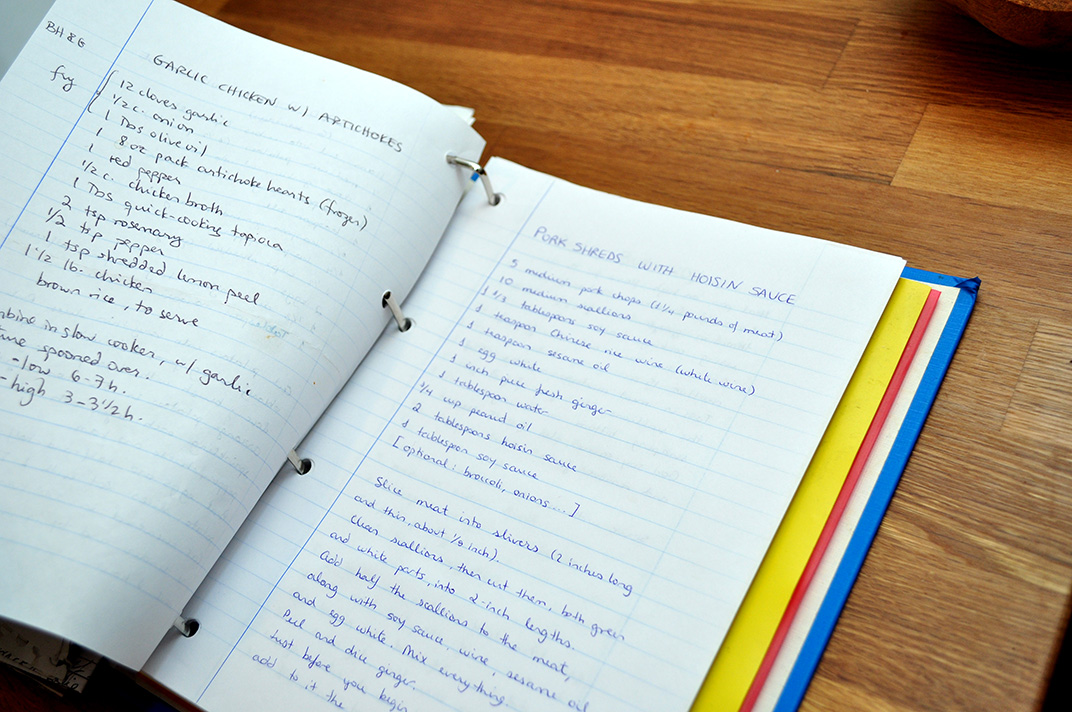 BH&G
GARLIC CHICKEN W/ ARTICHOKES
fry
12 cloves garlic
1/2 c. onion
1 Tbs olive oil
1 8oz pack artichoke hearts (frozen)
1 red pepper
1/2 c. chicken broth
1 Tbs quick-cooking tapioca
2 tsp rosemary
1/2 tsp pepper
1 tsp shredded lemon peel
1 1/2 lb. chicken
brown rice, to serve
in slow cooker, w/ garlic
spooned over.
-low 6-7h.
-high 3-3 1/2h.
PORK SHREDS WITH HOISIN SAUCE
5 medium pork chops (1 1/4 pounds of meat)
10 medium scallions
1 1/3 tablespoons soy sauce
1 teaspoon Chinese rice wine (white wine)
1 teaspoon sesame oil
1 egg white
1 inch piece fresh ginger
1 tablespoon water
1/4 cup peanut oil
2 tablespoons hoisin sauce
1 tablespoon soy sauce
[optional: broccoli, onions....]
Slice meat into slivers (2 inches long
and thin, about 1/8 inch).
Clean scallions, then cut them, both green
and white parts, into 2-inch lengths.
Add half the scallions to the meat,
along with soy sauce, wine, sesame oil
and egg white. Mix everything.
Peel and dice ginger.
Just before you begin
add to it the